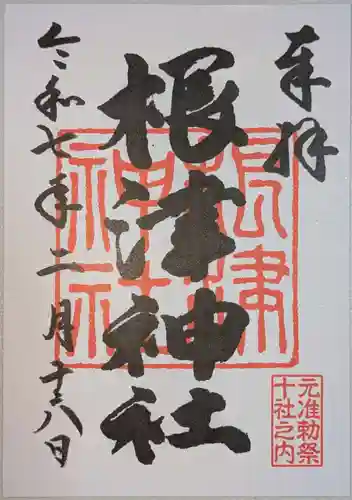 奉拝
根津神社
根津神社
元准勅祭
十社之内
令和七年二月十八日